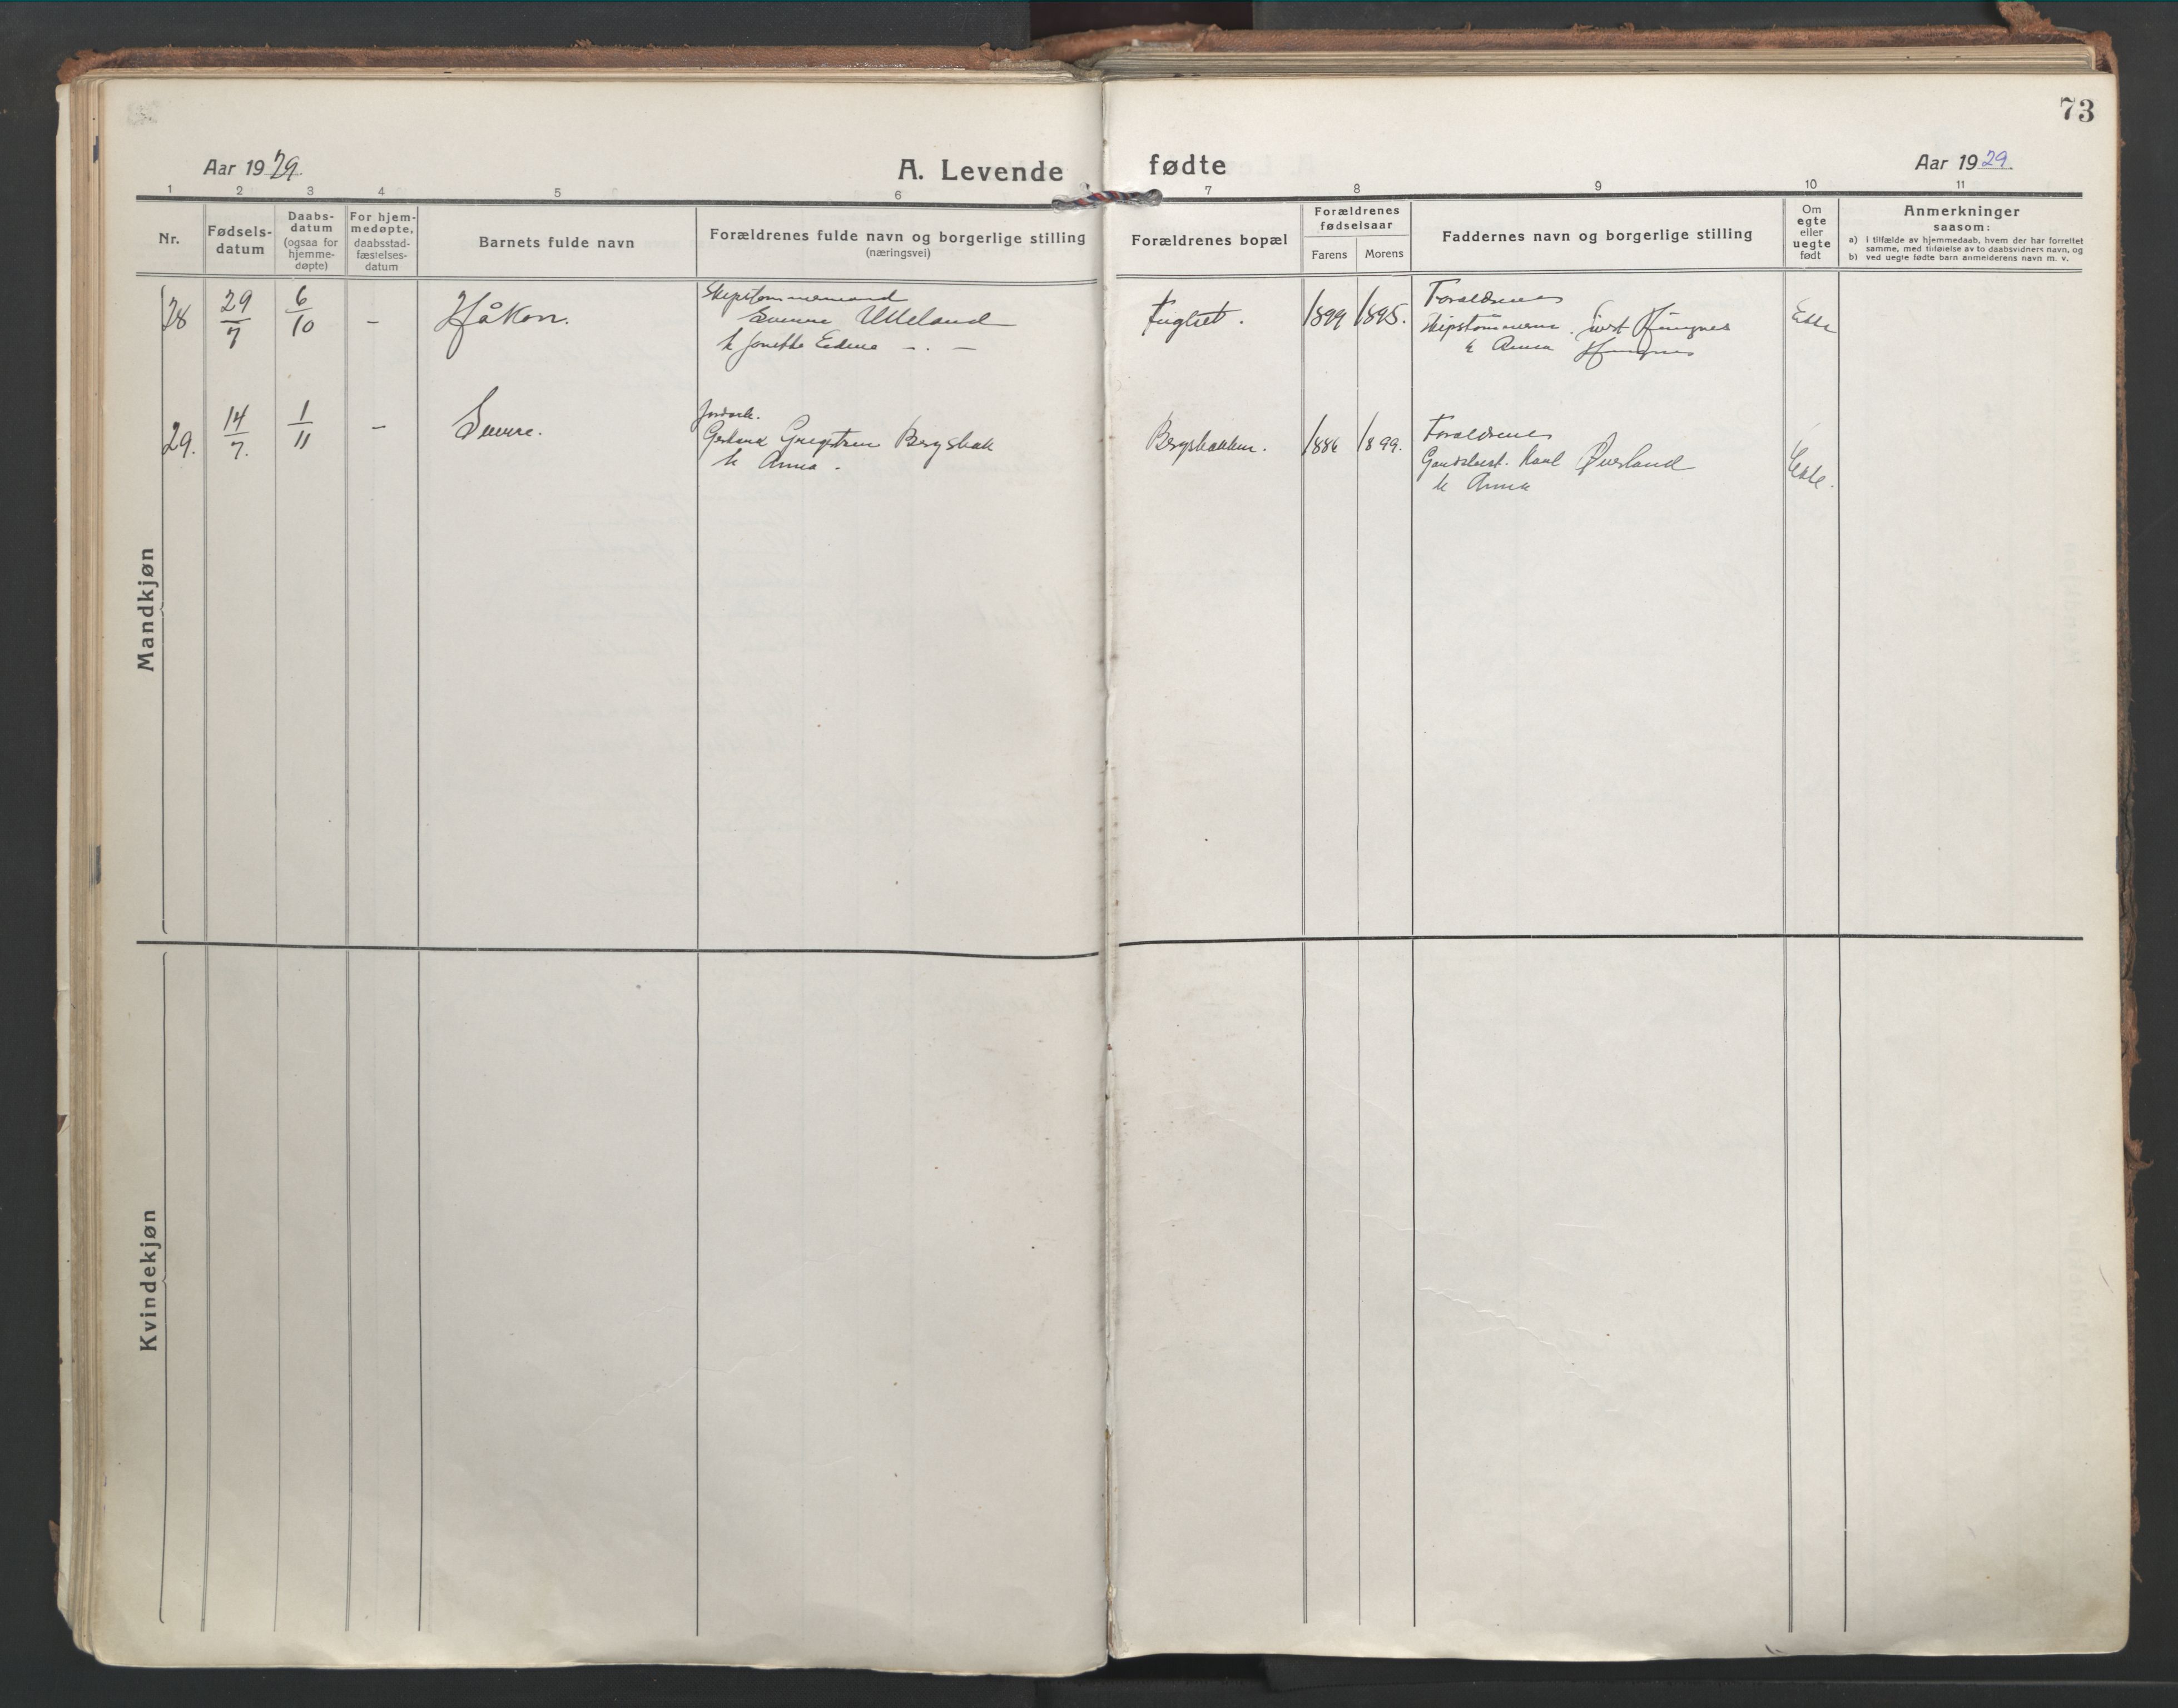 73
Aar 1929.
A. Levende fødte
Aar 1929.
1 2 3 4 5 6 7 8 9 10 11
Nr.
Fødsels-
datum
Daabs-
datum
(ogsaa for
hjemme-
døpte)
For hjem-
medøpte,
daabsstad-
fæstelses-
datum
Barnets fulde navn
Forældrenes fulde navn og borgerlige stilling
(næringsvei)
Forældrenes bopæl
Forældrenes
fødselsaar
Farens Morens
Faddernes navn og borgerlige stilling
Om
egte
eller
uegte
født
Anmerkninger
saasom:
a) i tilfælde av hjemmedaab, hvem der har forrettet
samme, med tilføielse av to daabsvidners navn, og
b) ved uegte fødte barn anmelderens navn m. v.
Mandkjøn
28 29/7 6/10 – Håkon.
Skipstømmermand
Sverre Utteland
Fuglset. 1899 1895.
Foraldrenes
&amp; Anna
Ekte
29. 14/7. 1/11 – Sverre.
Jordark.
Bergsbakk
&amp; Anna.
Bergsbakken. 1886 1899.
Foraldrenes
Øverland
&amp; Anna
Ekte.
Kvindekjøn